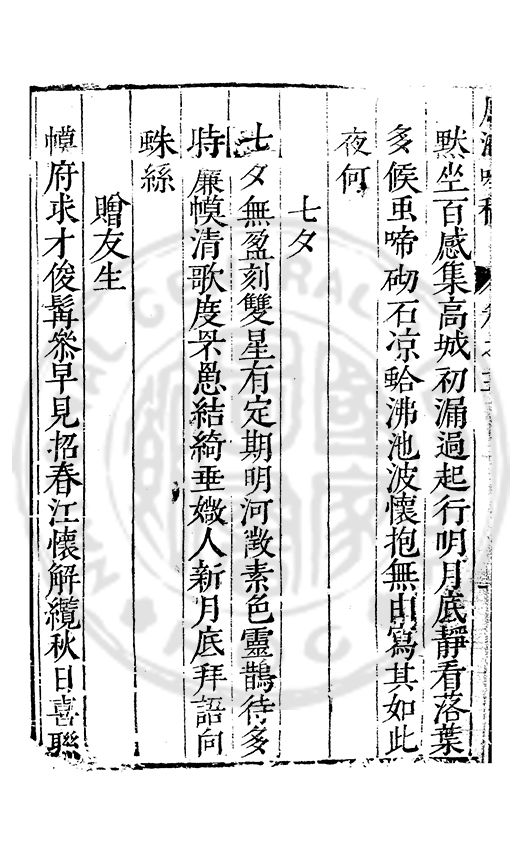 默坐百感集高城初漏過起行明月底靜看落葉
多候虫啼砌石凉蛤沸池波懷抱無由寫其如此
夜何
七夕
七夕無盈刻雙星有定期明河澂素色靈鵲待多
時廉幙清歌度罘罳結綺垂嬓人新月底拜語向
蛛絲
贈友生
幙府求才俊髯叅早見招春江懷解纜秋日喜聯